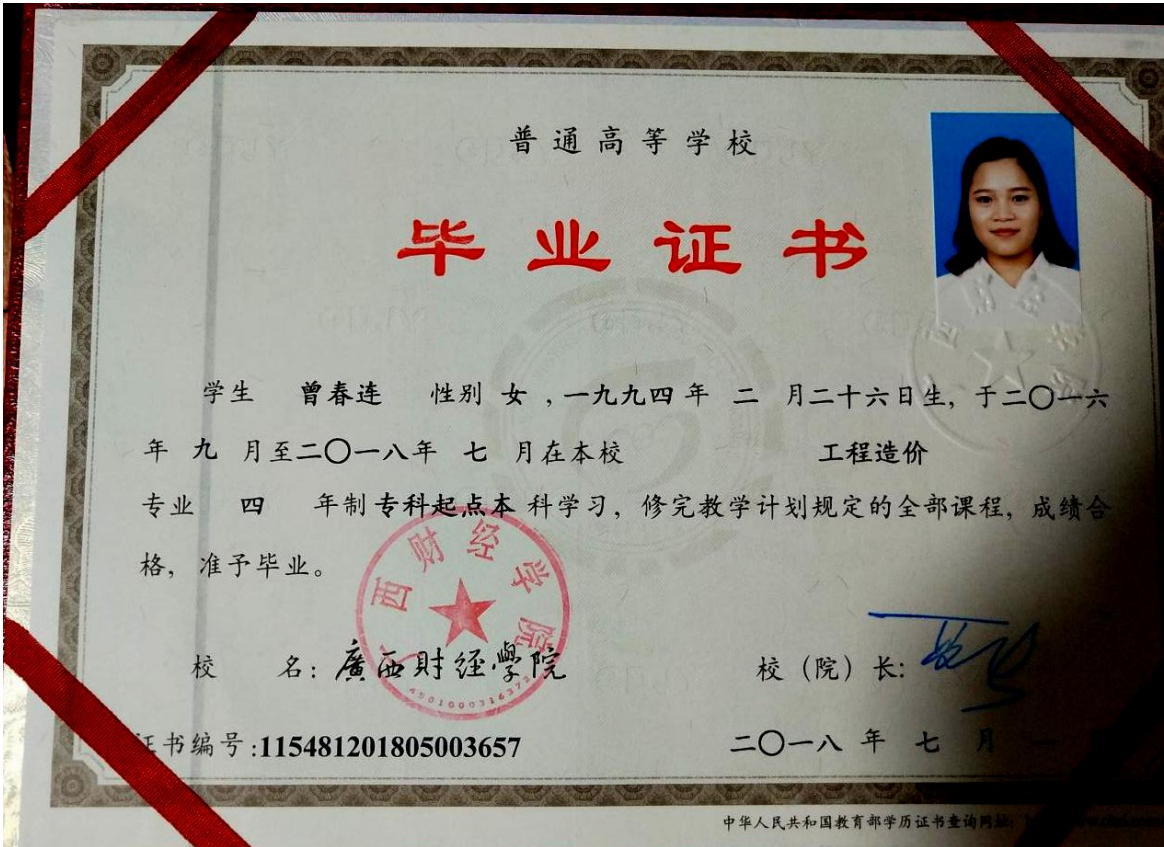 普通高等学校
毕业证书
学生 曾春连 性别 女 ,一九九四年 二 月二十六日生, 于二〇一六
年 九 月至二〇一八年 七 月在本校 工程造价
专业 四 年制 专科起点本 科学习, 修完教学计划规定的全部课程, 成绩合
格, 准予毕业。
广西财经学院
4501000316372
校 名: 廣西财经學院 校(院)长:
证书编号:115481201805003657 二〇一八 年 七 月 一
中华人民共和国教育部学历证书查询网址: